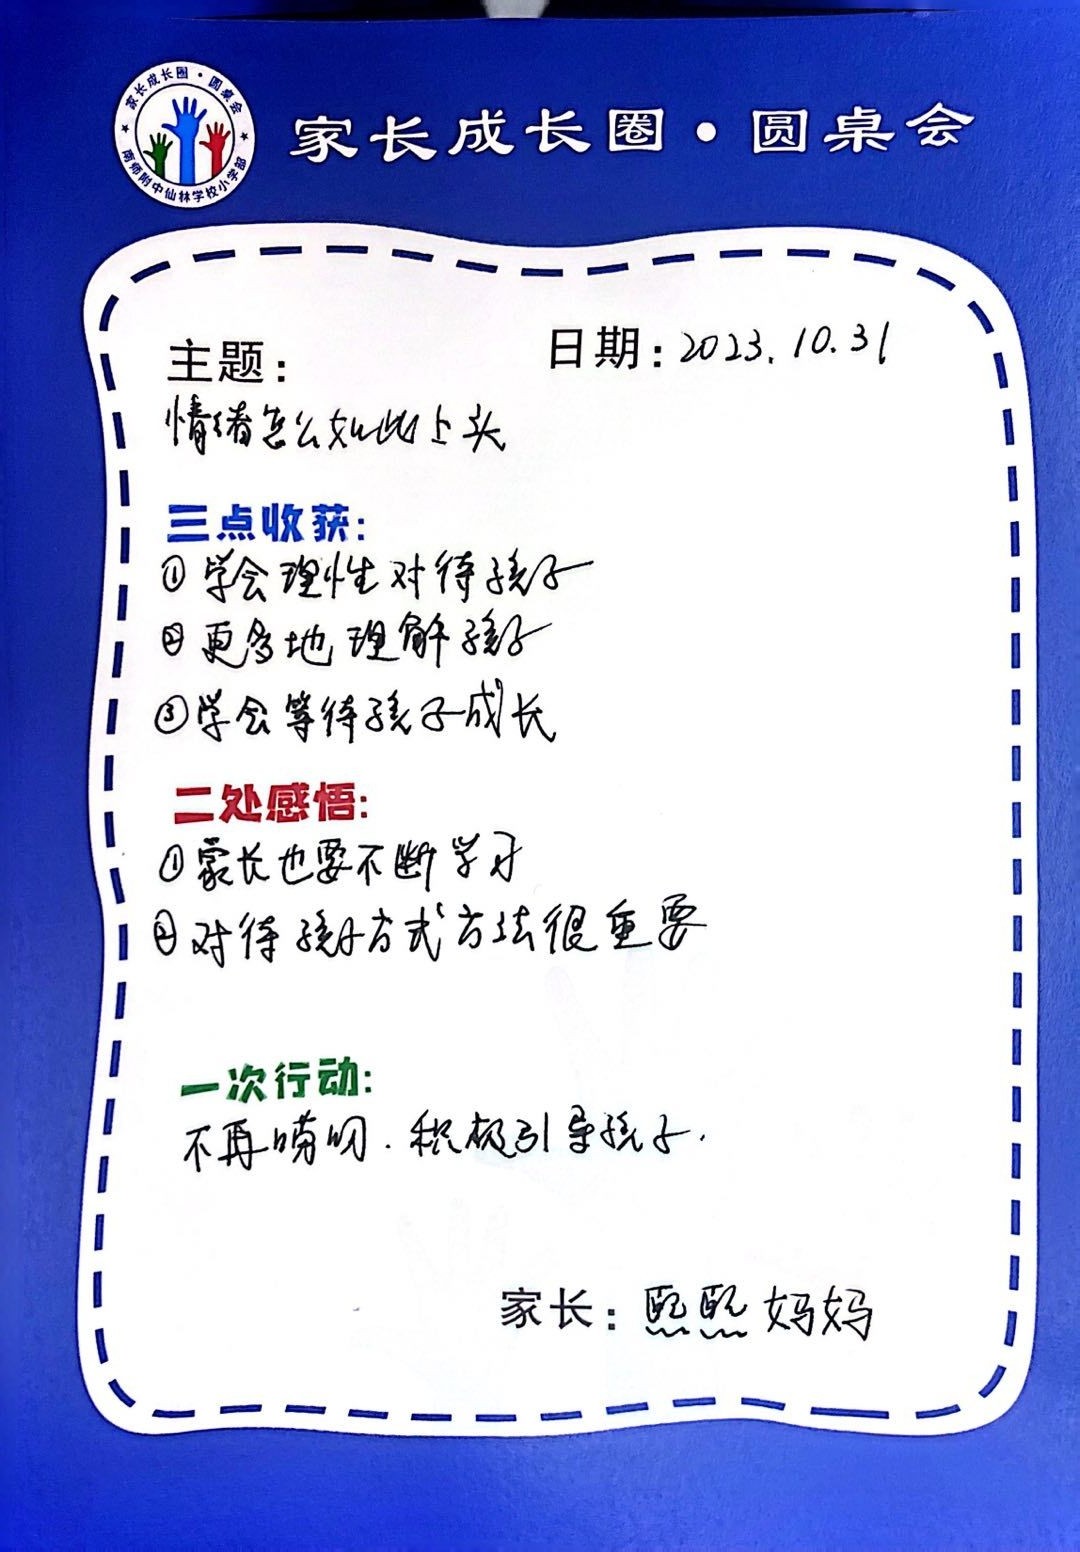 家长成长圈·圆桌会
南师附中仙林学校小学部
家长成长圈·圆桌会
主题：
日期：2023.10.31
情绪怎么如此上头
三点收获：
①学会理性对待孩子
②更多地理解孩子
③学会等待孩子成长
二处感悟：
①家长也要不断学习
②对待孩子方式方法很重要
一次行动：
不再唠叨.积极引导孩子.
家长：熙熙妈妈